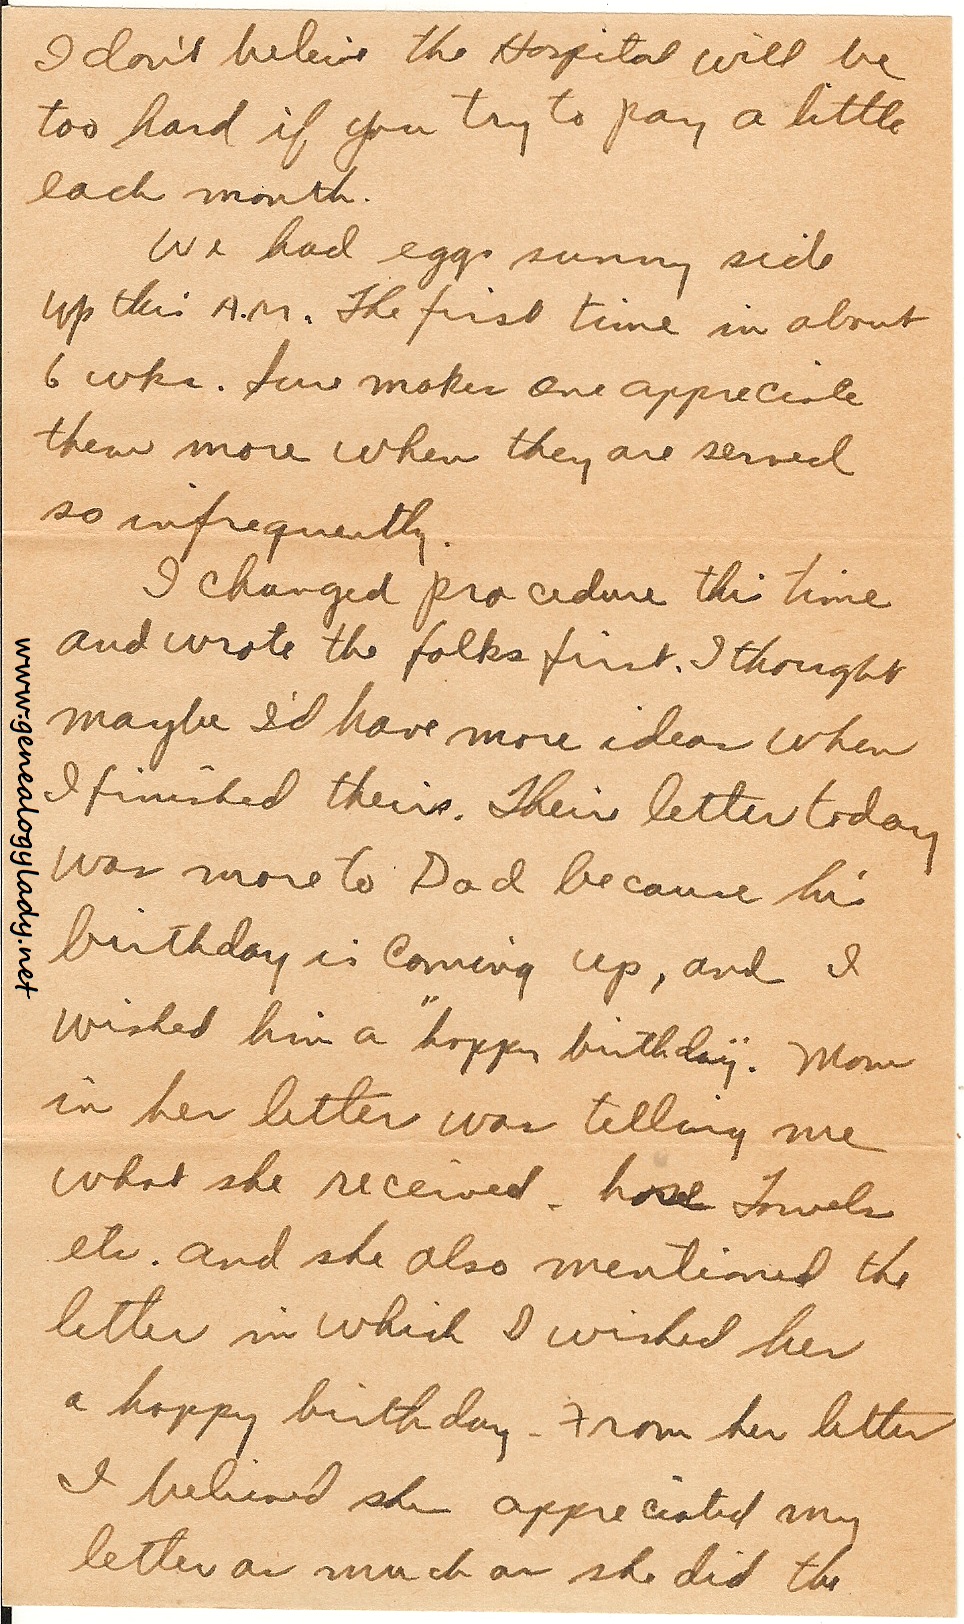 I don't beleive the Hospital will be
too hard if you try to pay a little
each month.
We had eggs sunny side
up this A.M. The first time in about
6 wks. Sure makes one appreciate
them more when they are served
so infrequently.
I changed procedure this time
and wrote the folks first. I thought
maybe I'd have more ideas when
I finished theirs. Their letter today
was more to Dad because his
birthday is coming up, and I
wished him a "happy birthday". Mom
in her letter was telling me
what she received - hose Towels
etc. and she also mentioned the
letter in which I wished her
a happy birthday. From her letter
I believed she appreciated my
letter as much as she did the
www.genealogylady.net